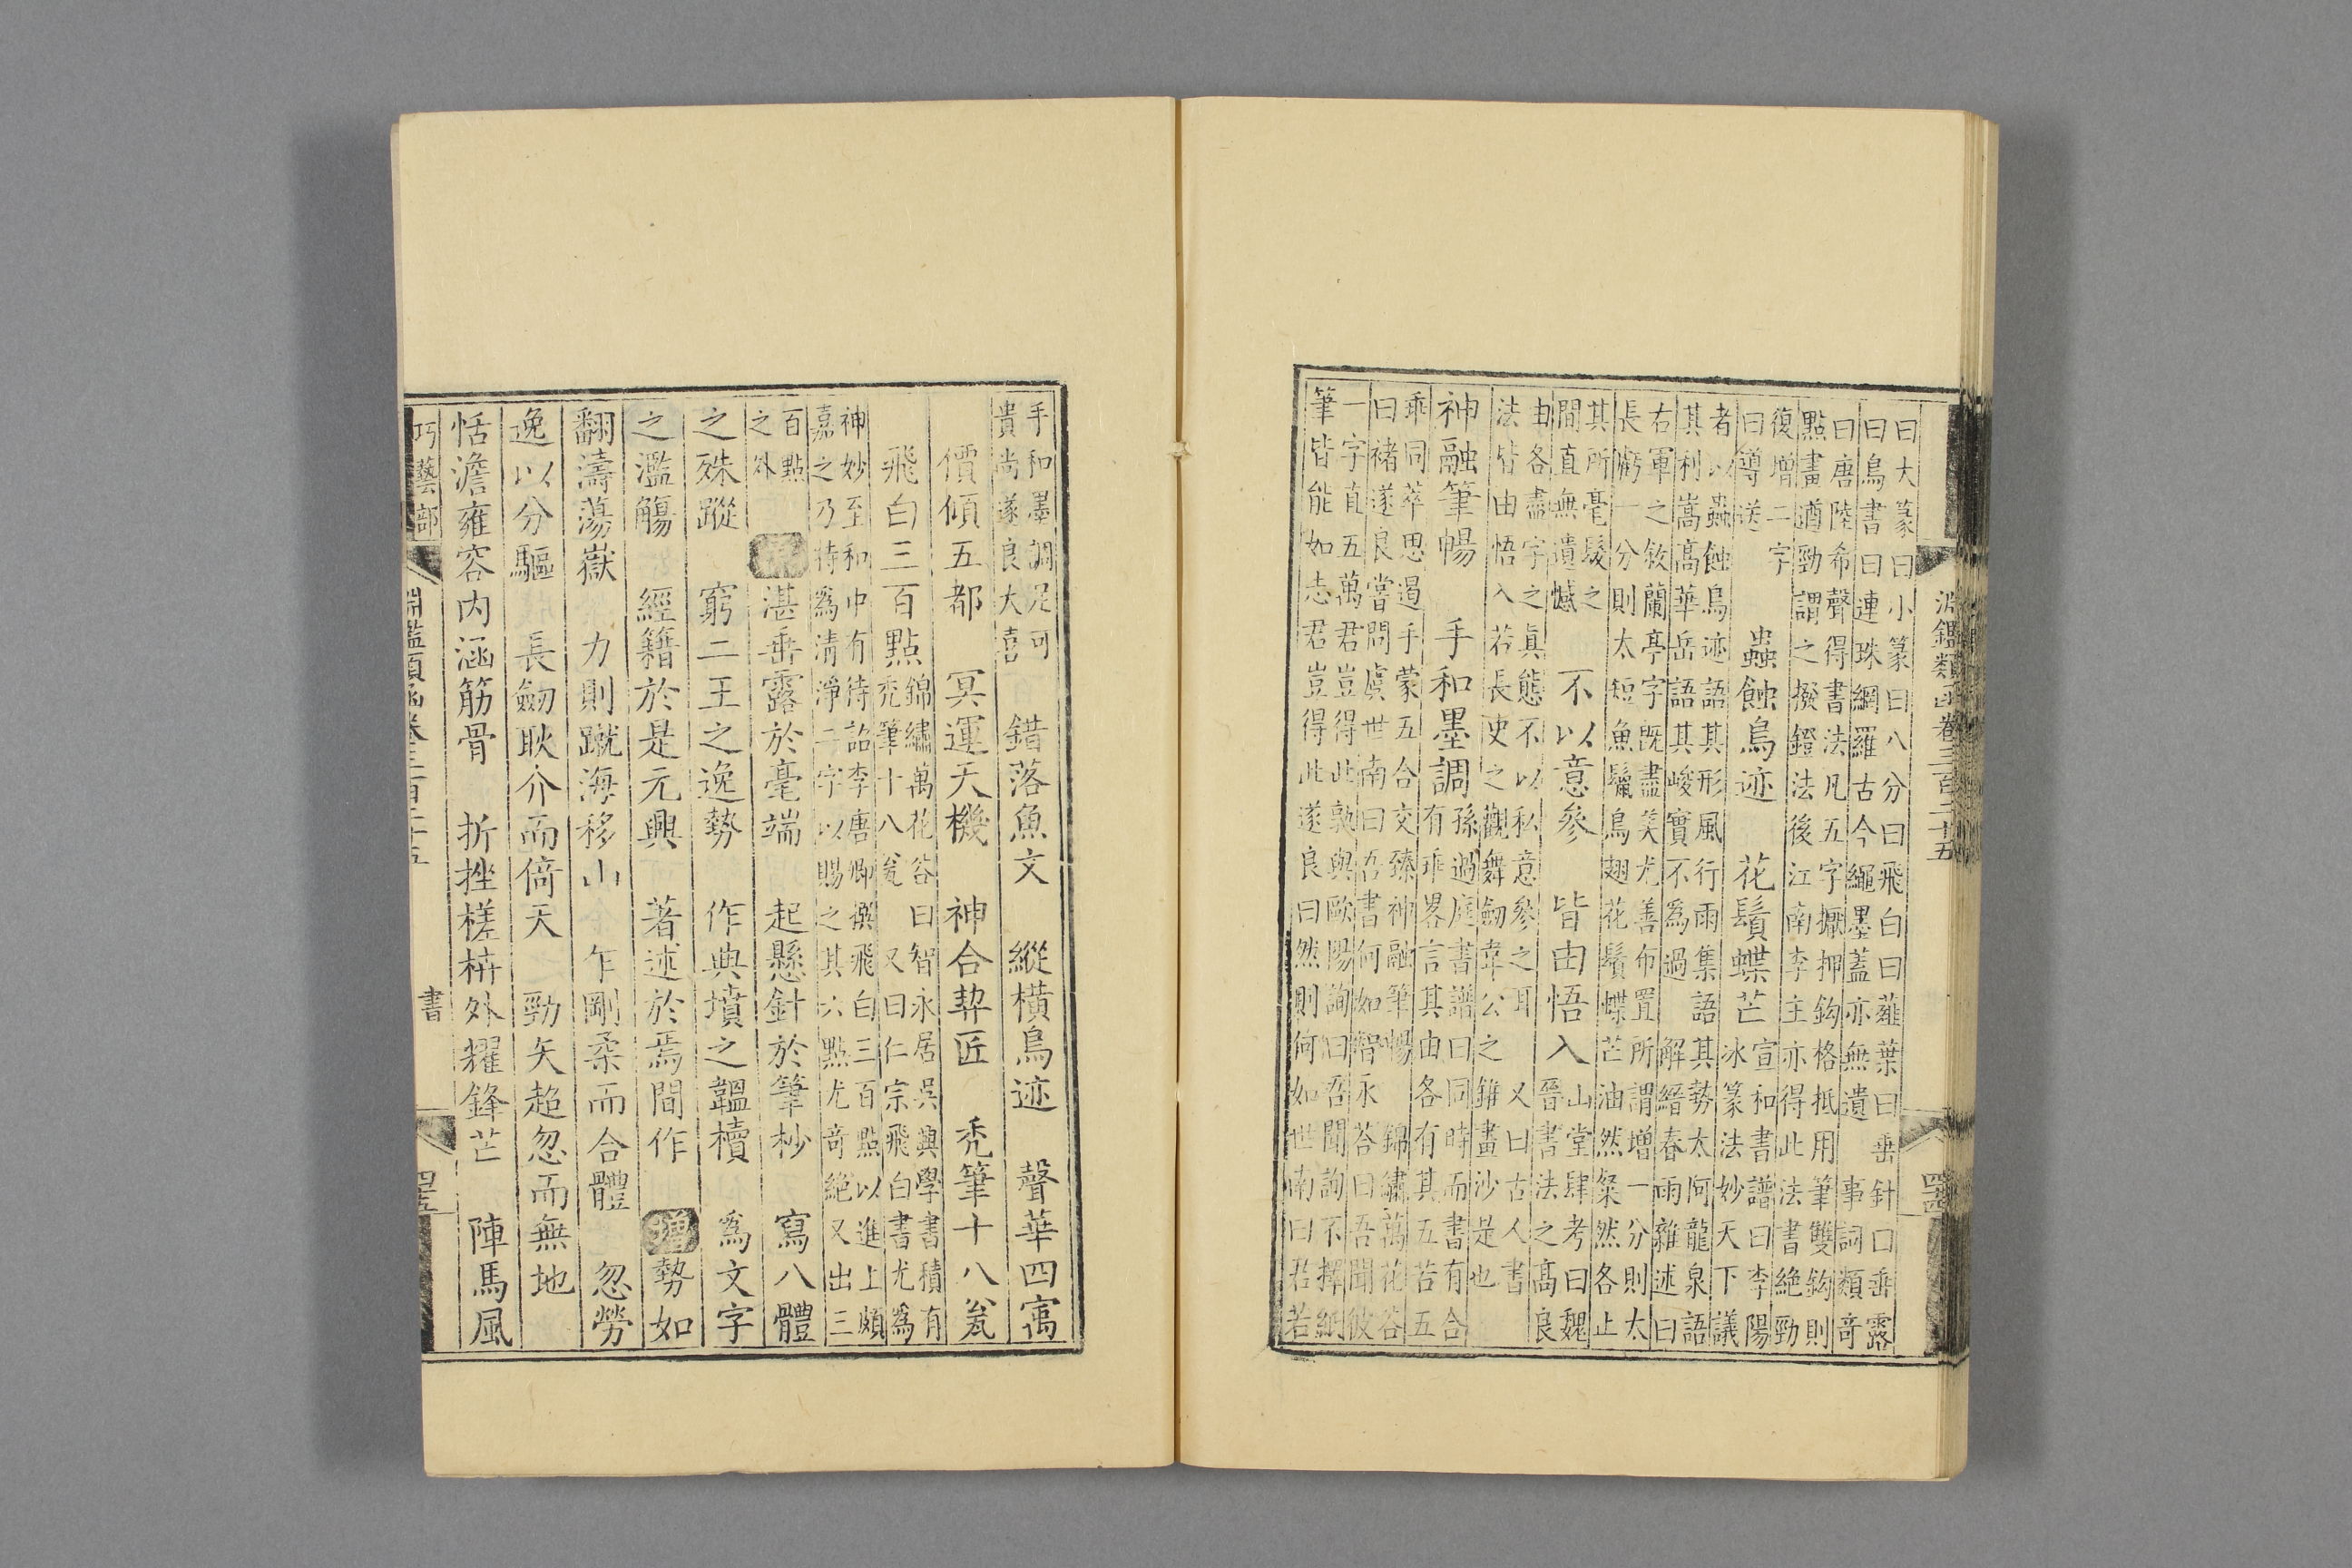 淵鑑類函卷三百二十五
曰大篆曰小篆曰八分曰飛白曰薤葉曰垂針曰垂露
曰鳥書曰連珠網羅古今繩墨蓋亦無遺 事詞類奇
曰唐陸希聲得書法凡五字擫押鈎格抵用筆雙鈎則
點畫遒勁謂之撥鐙法後江南李主亦得此法書絕勁
復增二字
曰導送
蟲蝕鳥迹 花鬚蝶芒
宣和書譜曰李陽
冰篆法妙天下議
者以蟲蝕鳥迹語其形風行雨集語其勢太阿龍泉語
其利嵩高華岳語其峻實不為過 解縉春雨雜述曰
右軍之敘蘭亭字既盡美尤善布置所謂增一分則太
長虧一分則太短魚鬣鳥翅花鬚蝶芒油然粲然各止
其所毫髮之
間直無遺憾
不以意參 皆由悟入
山堂肆考曰魏
晉書法之高良
由各盡字之真態不以私意參之耳 又曰古人書
法皆由悟入若長史之觀舞劒韋公之錐畫沙是也
神融筆暢 手和墨調
孫過庭書譜曰同時而書有合
有乖畧言其由各有其五若五
乖同萃思遏手蒙五合交臻神融筆暢 錦繡萬花谷
曰褚遂良嘗問虞世南曰吾書何如智永荅曰吾聞彼
一字直五萬君豈得此孰與歐陽詢曰吾聞詢不擇紙
筆皆能如志君豈得此遂良曰然則何如世南曰君若
手和墨調足可
貴尚遂良大喜
錯落魚文 縱橫鳥迹 聲華四㝢
價傾五都 冥運天機 神合契匠 禿筆十八瓮
飛白三百點
錦繡萬花谷曰智永居吳興學書積有
禿筆十八瓮 又曰仁宗飛白書尤為
神妙至和中有待詔李唐卿撰飛白三百點以進上頗
嘉之乃特為清淨二字以賜之其六點尤奇絕又出三
百點
之外
湛垂露於毫端 起懸針於筆杪 寫八體
之殊蹤 窮二王之逸勢 作典墳之韞櫝 為文字
之濫觴 經籍於是元興 著述於焉間作 增 勢如
翻濤蕩嶽 力則蹴海移山 乍剛柔而合體 忽勞
逸以分驅 長劒耿介而倚天 勁矢超忽而無地
恬澹雍容內涵筋骨 折挫槎枿外耀鋒芒 陣馬風
巧藝部 淵鑑類函卷三百二十五 書